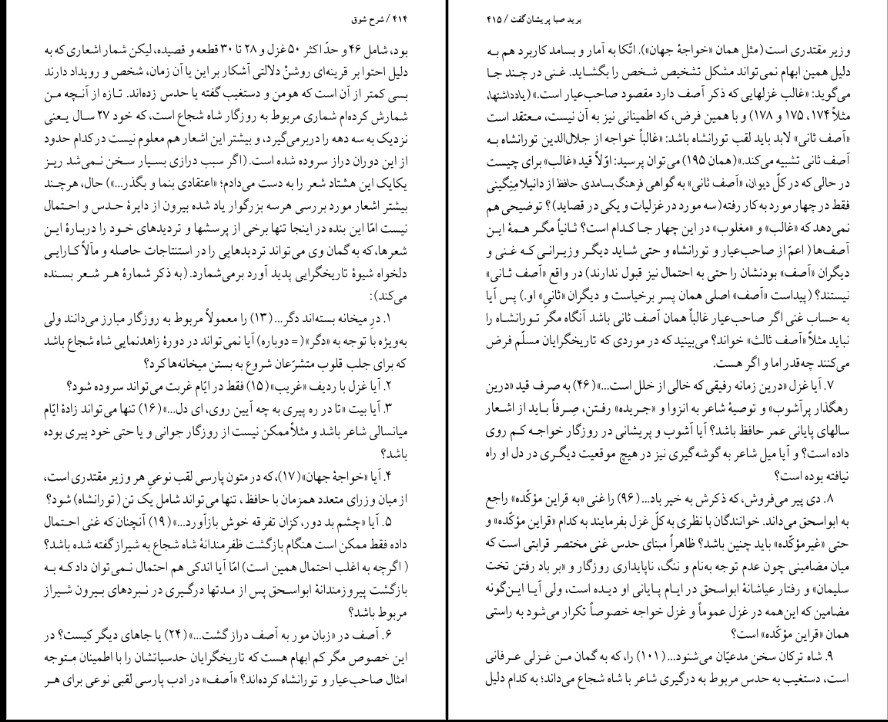 ۴۱۴ / شرح شوق
بود، شامل ۴۶ و حدّ اکثر ۵۰ غزل و ۲۸ تا ۳۰ قطعه و قصیده، لیکن شمار اشعاری که به
دلیل احتوا بر قرینه‌ای روشنْ دلالتی آشکار بر این یا آن زمان، شخص و رویداد دارند
بسی کمتر از آن است که هومن و دستغیب گفته یا حدس زده‌اند. تازه از آنچه من
شمارش کرده‌ام شماری مربوط به روزگار شاه شجاع است، که خود ۲۷ سال یعنی
نزدیک به سه دهه را دربرمی‌گیرد، و بیشتر این اشعار هم معلوم نیست در کدام حدود
از این دوران دراز سروده شده است. (اگر سبب درازی بسیار سخن نمی‌شد ریز
یکایک این هشتاد شعر را به دست می‌دادم؛ «اعتقادی بنما و بگذر...») حال، هرچند
بیشتر اشعار مورد بررسی هرسه بزرگوار یاد شده بیرون از دایرهٔ حدس و احتمال
نیست امّا این بنده در اینجا تنها برخی از پرسشها و تردیدهای خود را دربارهٔ این
شعرها، که به گمان وی می‌تواند تردیدهایی را در استنتاجات حاصله و مآلاً کارایی
دلخواه شیوهٔ تاریخگرایی پدید آورد برمی‌شمارد. (به ذکر شمارهٔ هر شعر بسنده
می‌کند):
۱. درِ میخانه بسته‌اند دگر... (۱۳) را معمولاً مربوط به روزگار مبارز می‌دانند ولی
به‌ویژه با توجه به «دگر» (= دوباره) آیا نمی‌تواند در دورهٔ زاهدنمایی شاه شجاع باشد
که برای جلب قلوب متشرّعان شروع به بستن میخانه‌ها کرد؟
۲. آیا غزل با ردیف «غریب» (۱۵) فقط در ایّام غربت می‌تواند سروده شود؟
۳. آیا بیت «تا در ره پیری به چه آیین روی، ای دل...» (۱۶) تنها می‌تواند زادهٔ ایّام
میانسالی شاعر باشد و مثلاً ممکن نیست از روزگار جوانی و یا حتی خود پیری بوده
باشد؟
۴. آیا «خواجهٔ جهان» (۱۷)، که در متون پارسی لقب نوعیِ هر وزیر مقتدری است،
از میان وزرای متعدد همزمان با حافظ، تنها می‌تواند شامل یک تن (تورانشاه) شود؟
۵. آیا «چشم بد دور، کزان تفرقه خوش بازآورد...» (۱۹) آنچنان که غنی احتمال
داده فقط ممکن است هنگام بازگشت ظفرمندانهٔ شاه شجاع به شیراز گفته شده باشد؟
(اگرچه به اغلب احتمال همین است) امّا آیا اندکی هم احتمال نمی‌توان داد که به
بازگشت پیروزمندانهٔ ابواسحق پس از مدتها درگیری در نبردهای بیرون شیراز
مربوط باشد؟
۶. آصف در «زبان مور به آصف دراز گشت...» (۲۴) یا جاهای دیگر کیست؟ در
این خصوص مگر کم ابهام هست که تاریخگرایان حدسیاتشان را با اطمینان متوجه
امثال صاحب‌عیار و تورانشاه کرده‌اند؟ «آصف» در ادب پارسی لقبی نوعی برای هر
برید صبا پریشان گفت / ۴۱۵
وزیر مقتدری است (مثل همان «خواجهٔ جهان»). اتّکا به آمار و بسامد کاربرد هم به
دلیل همین ابهام نمی‌تواند مشکل تشخیص شخص را بگشاید. غنی در چند جا
می‌گوید: «غالب غزلهایی که ذکر آصف دارد مقصود صاحب‌عیار است.» (یادداشتها،
مثلاً ۱۷۴، ۱۷۵ و ۱۷۸) و با همین فرض، که اطمینانی نیز به آن نیست، معتقد است
«آصف ثانی» لابد باید لقب تورانشاه باشد: «غالباً خواجه از جلال‌الدین تورانشاه به
آصف ثانی تشبیه می‌کند.» (همان ۱۹۵) می‌توان پرسید: اوّلاً قید «غالب» برای چیست
در حالی که در کلّ دیوان، «آصف ثانی» به گواهی فرهنگ بسامدی حافظ از دانیلا مِنِگینی
فقط در چهار مورد به کار رفته (سه مورد در غزلیات و یکی در قصاید)؟ توضیحی هم
نمی‌دهد که «غالب» و «مغلوب» در این چهار جا کدام است؟ ثانیاً مگر همهٔ این
آصف‌ها (اعمّ از صاحب‌عیار و تورانشاه و حتی شاید دیگر وزیرانی که غنی و
دیگران «آصف» بودنشان را حتی به احتمال نیز قبول ندارند) در واقع «آصف ثانی»
نیستند؟ (پیداست «آصف» اصلی همان پسر برخیاست و دیگران «ثانیِ» او.) پس آیا
به حساب غنی اگر صاحب‌عیار غالباً همان آصف ثانی باشد آنگاه مگر تورانشاه را
نباید مثلاً «آصف ثالث» خواند؟ می‌بینید که در موردی که تاریخگرایان مسلّم فرض
می‌کنند چه‌قدر اما و اگر هست.
۷. آیا غزل «درین زمانه رفیقی که خالی از خلل است...» (۴۶) به صرف قید «درین
رهگذار پرآشوب» و توصیهٔ شاعر به انزوا و «جریده» رفتن، صِرفاً باید از اشعار
سالهای پایانی عمر حافظ باشد؟ آیا آشوب و پریشانی در روزگار خواجه کم روی
داده است؟ و آیا میل شاعر به گوشه‌گیری نیز در هیچ موقعیت دیگری در دل او راه
نیافته بوده است؟
۸. دی پیر می‌فروش، که ذکرش به خیر باد... (۹۶) را غنی «به قراین مؤکّده» راجع
به ابواسحق می‌داند. خوانندگان با نظری به کلّ غزل بفرمایند به کدام «قراین مؤکّده» و
حتی «غیرمؤکّده» باید چنین باشد؟ ظاهراً مبنای حدس غنی مختصر قرابتی است که
میان مضامینی چون عدم توجه به‌نام و ننگ، ناپایداری روزگار و «بر باد رفتن تخت
سلیمان» و رفتار عیاشانهٔ ابواسحق در ایام پایانی او دیده است، ولی آیا این‌گونه
مضامین که این‌همه در غزل عموماً و غزل خواجه خصوصاً تکرار می‌شود به راستی
همان «قراین مؤکّده» است؟
۹. شاه ترکان سخن مدعیّان می‌شنود... (۱۰۱) را، که به گمان من غزلی عرفانی
است، دستغیب به حدس مربوط به درگیری شاعر با شاه شجاع می‌داند؛ به کدام دلیل